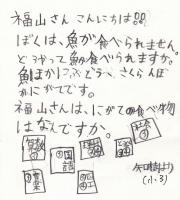 福山さん こんにちは!!
ぼくは、魚が食べられません。
どうやって魚が食べられますか。
魚ほかにぶどう、さくらんぼ
がにがてです。
福山さんは、にがての食べ物
はなんですか。
国語
(小3)